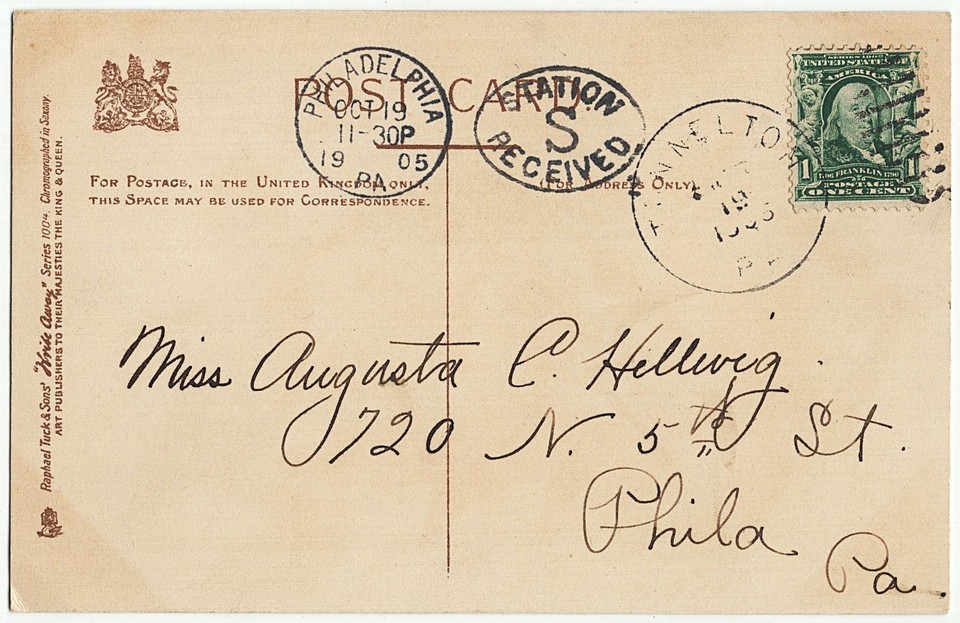 POST CARD
PHILADELPHIA
OCT 19
11-30P
19 05
PA.
STATION
S
RECEIVED.
TUNNELTON
19
PA
SERIES 1902
UNITED STATES OF
AMERICA
1 1
1706 FRANKLIN 1790
POSTAGE
ONE CENT
FOR POSTAGE, IN THE UNITED KINGDOM ONLY,
THIS SPACE MAY BE USED FOR CORRESPONDENCE.
(FOR ADDRESS ONLY)
Raphael Tuck & Sons' "Write Away" Series 1004. Chromographed in Saxony.
ART PUBLISHERS TO THEIR MAJESTIES THE KING & QUEEN.
Miss Augusta C. Hellwig.
720 N. 5th St.
Phila
Pa.